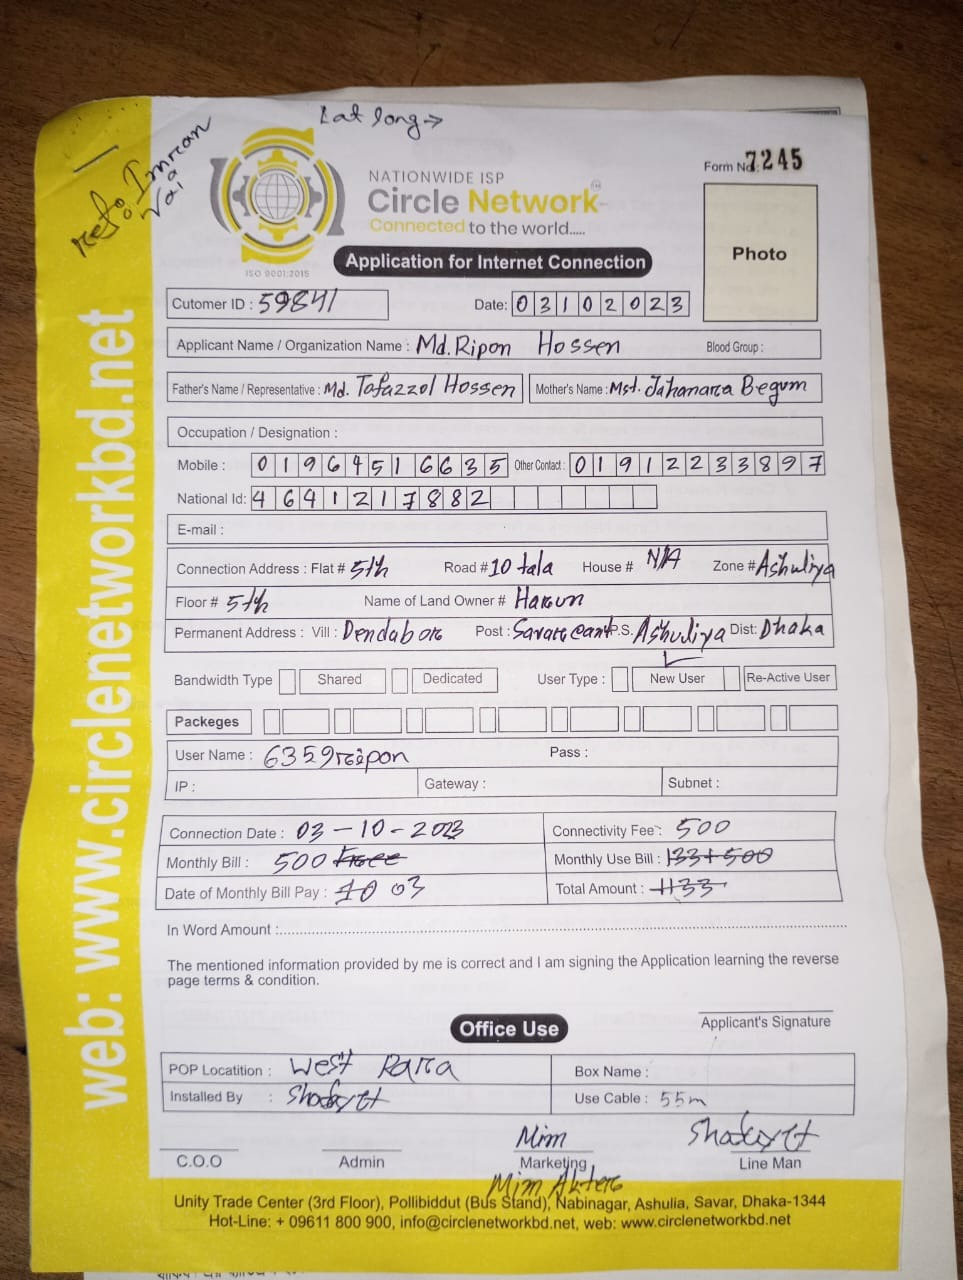 Lat long→
Refo Imran
Vai
NATIONWIDE ISP
Circle Network
Connected to the world.....
ISO 9001:2015
Form No. 7245
Photo
Application for Internet Connection
Cutomer ID : 59841
Date: 03102023
Applicant Name / Organization Name : Md. Ripon Hossen Blood Group :
Father's Name / Representative : Md. Tofazzol Hossen Mother's Name : Mst. Jahanara Begum
Occupation / Designation :
Mobile : 01964516635 Other Contact : 01912233897
National Id: 4641217882
E-mail :
Connection Address : Flat # 5th Road # 10 tala House # N/A Zone # Ashuliya
Floor # 5th Name of Land Owner # Harun
Permanent Address : Vill : Dendabor Post : Savar cant P.S. Ashuliya Dist: Dhaka
Bandwidth Type Shared Dedicated User Type : New User Re-Active User
Packeges
User Name : 6359ripon Pass :
IP : Gateway : Subnet :
Connection Date : 03-10-2023 Connectivity Fee : 500
Monthly Bill : 500 Free Monthly Use Bill : 133+500
Date of Monthly Bill Pay : 10 03 Total Amount : 1133
In Word Amount :
The mentioned information provided by me is correct and I am signing the Application learning the reverse
page terms & condition.
Applicant's Signature
Office Use
POP Locatition : West Para Box Name :
Installed By : Use Cable : 55m
Mim
C.O.O Admin Marketing Line Man
Mim Akter
Unity Trade Center (3rd Floor), Pollibiddut (Bus Stand), Nabinagar, Ashulia, Savar, Dhaka-1344
Hot-Line: + 09611 800 900, info@circlenetworkbd.net, web: www.circlenetworkbd.net
web: www.circlenetworkbd.net